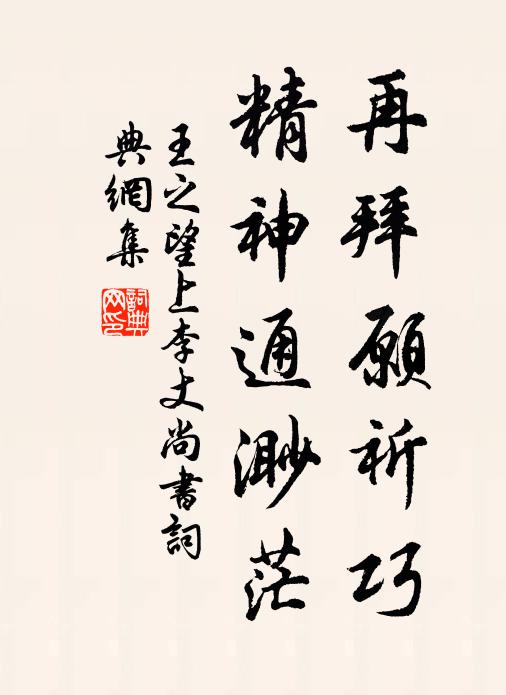 再拜願祈巧
精神通渺茫
王之望上李丈尚書詞
典網集
詞典
网印